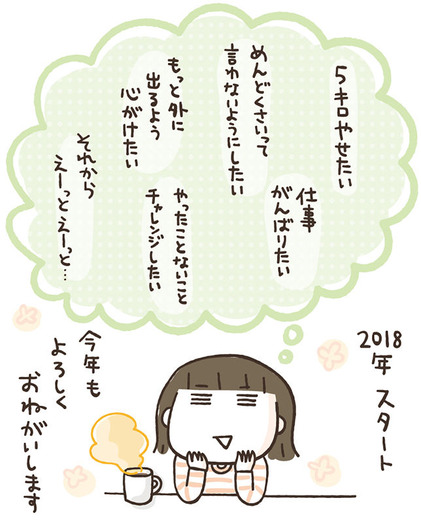 5キロやせたい
めんどくさいって
言わないようにしたい
もっと外に
出るよう
心がけたい
仕事
がんばりたい
やったことないこと
チャレンジしたい
それから
えーっとえーっと…
2018年 スタート
今年も
よろしく
おねがいします